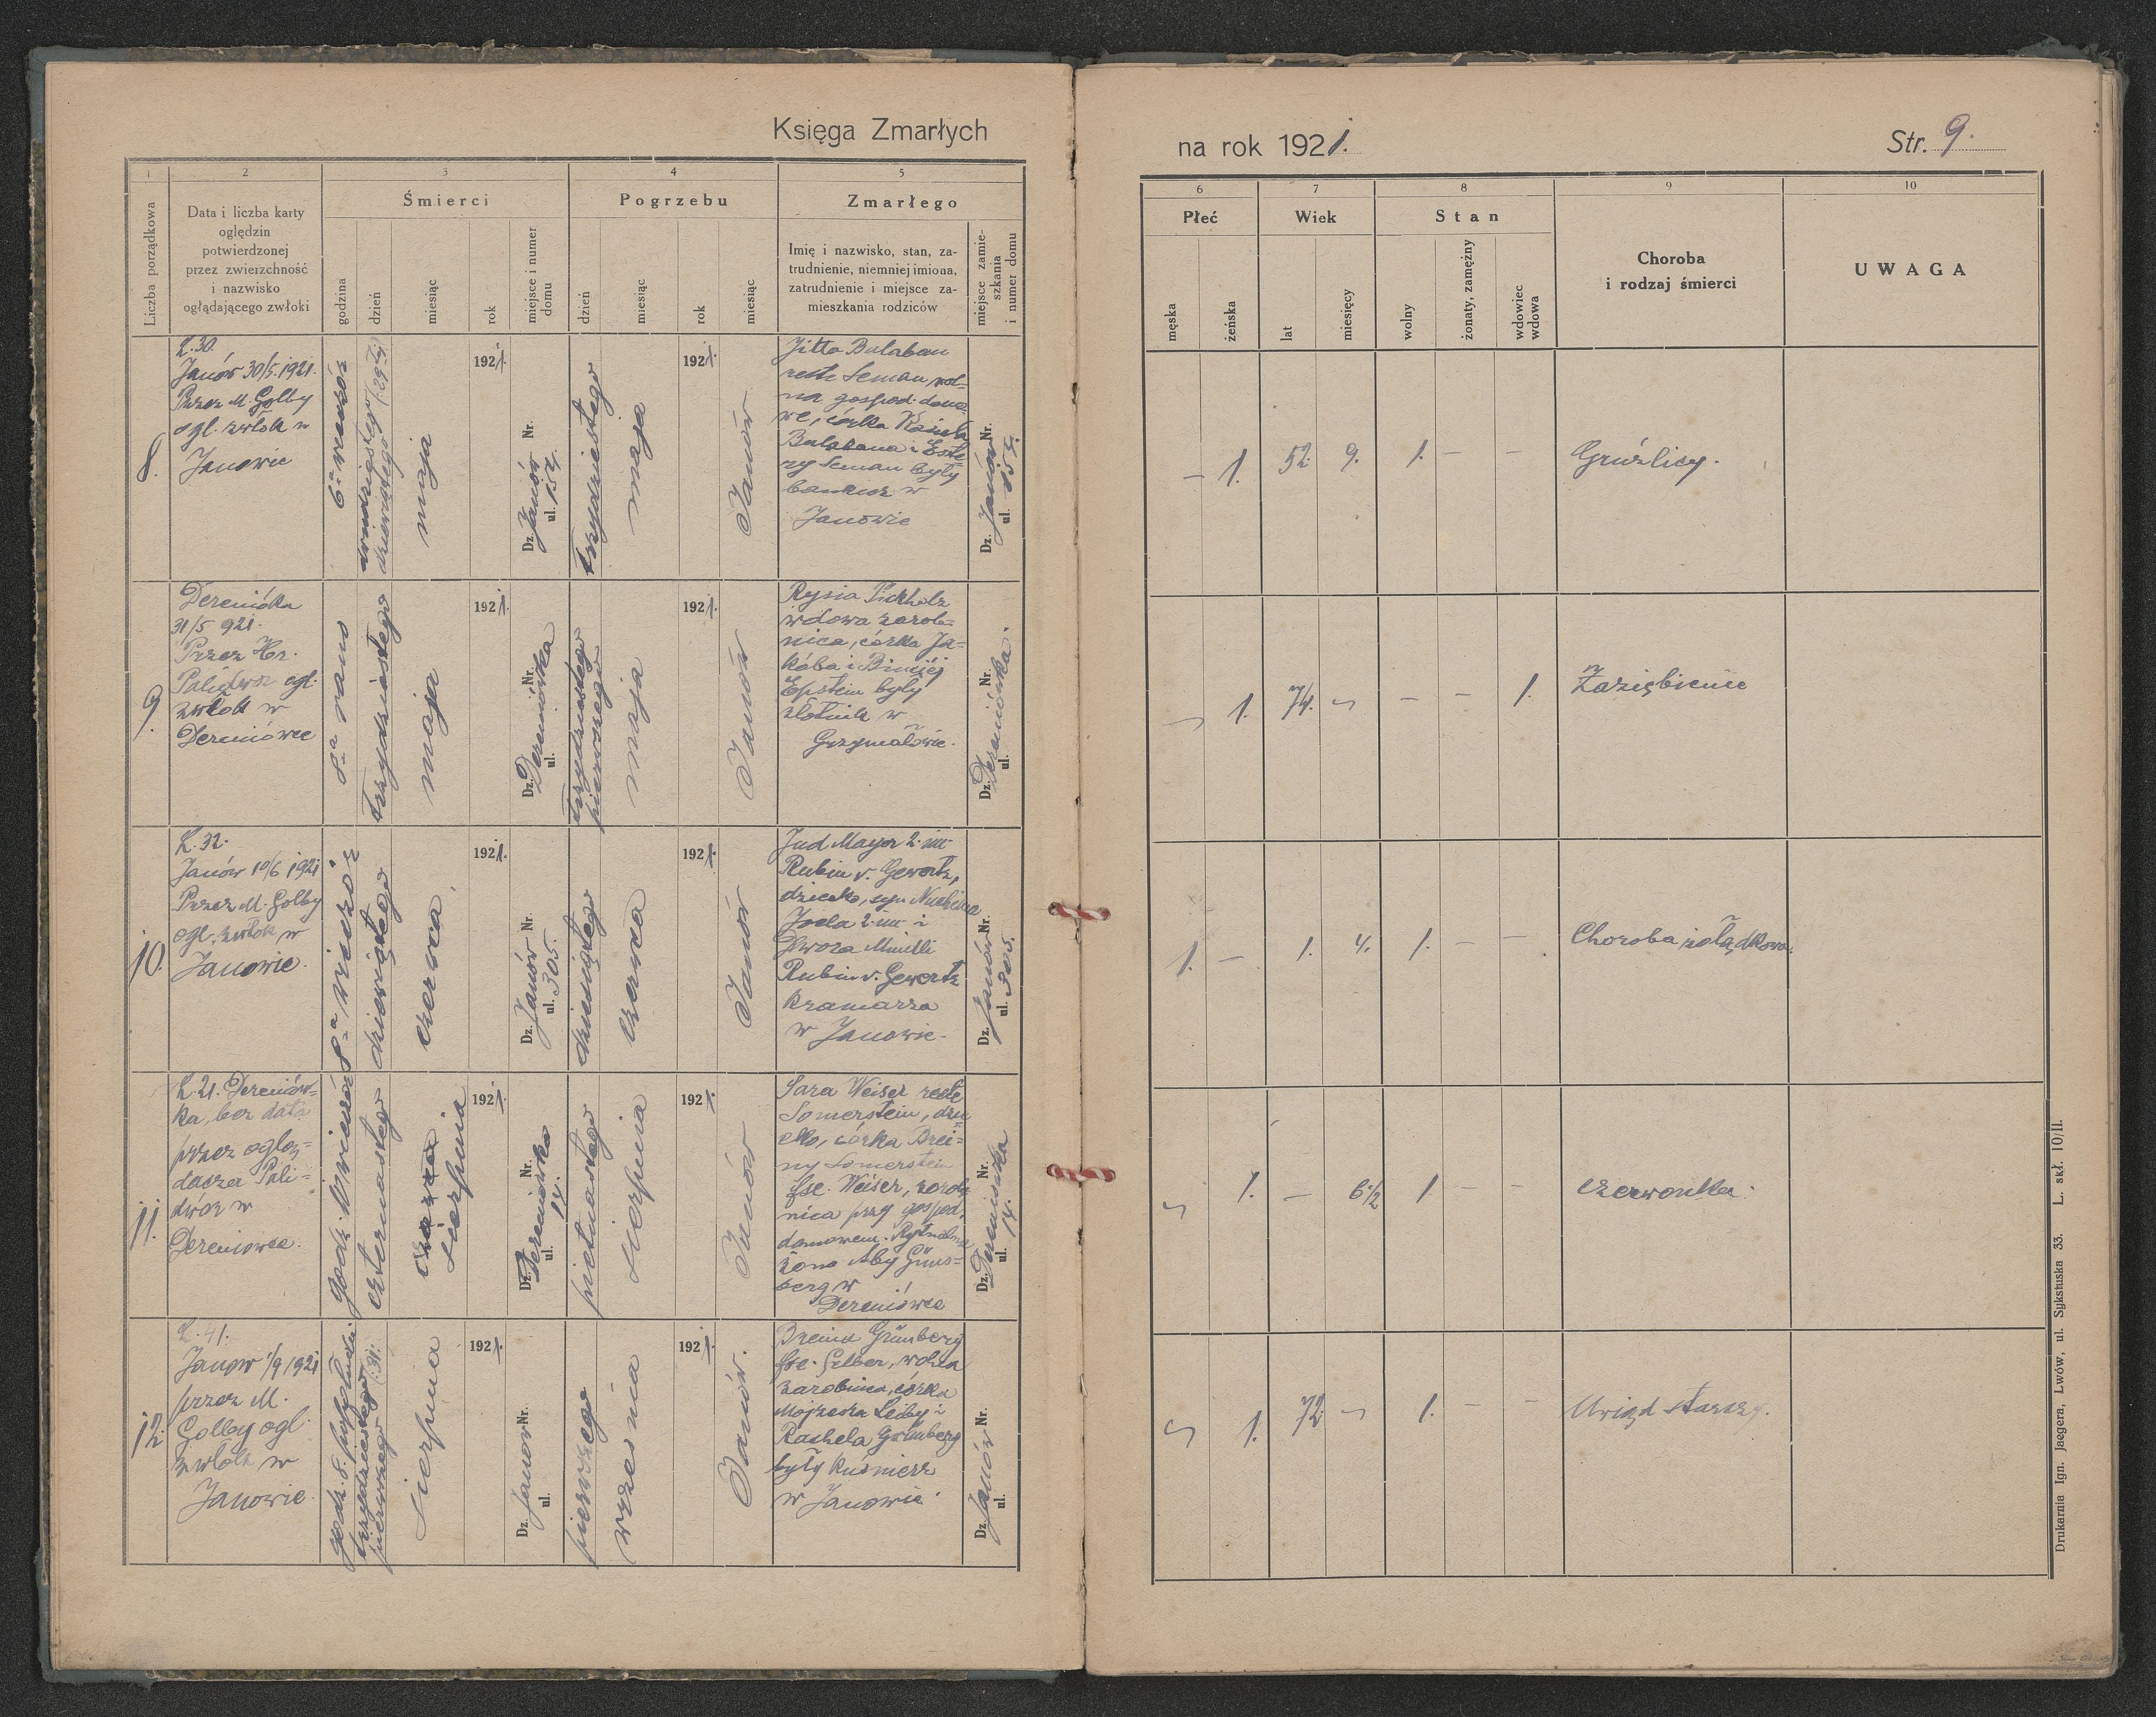 Księga Zmarłych
na rok 1921.
Str. 9.
1 2 3 4 5
Śmierci Pogrzebu Zmarłego
Liczba porządkowa
Data i liczba karty
oględzin
potwierdzonej
przez zwierzchność
i nazwisko
oglądającego zwłoki
godzina
dzień
miesiąc
rok
miejsce i numer
domu
dzień
miesiąc
rok
miesiąc
Imię i nazwisko, stan, za-
trudnienie, niemniej imiona,
zatrudnienie i miejsce za-
mieszkania rodziców
miejsce zamie-
szkania
i numer domu
6 7 8 9 10
Płeć Wiek Stan
męska
żeńska
lat
miesięcy
wolny
żonaty, zamężny
wdowiec
wdowa
Choroba
i rodzaj śmierci
UWAGA
8.
L. 30.
Janów 30/5. 1921.
Przez M. Golby
ogl. zwłok w
Janowie
6a wieczór
dwudziestego
dziewiątego (29go)
maja
1921.
Dz. Janów Nr.
ul. 152.
trzydziestego
maja
1921.
Janów
Jitte Balaban
recte Seman wol-
na gospod. domo
we, córka
Balabana i Este
ry Seman były
w
Janowie
Dz. Janów Nr.
ul. 152.
— 1. 52. 9. 1. — —
Gruźlicy.
9.
Dereniówka
31/5 921.
Przez Hr.
Palidwor ogl.
zwłok w
Dereniówce
8a rano
trzydziestego
maja
1921.
Dz. Dereniówka Nr.
ul.
trzydziestego
pierwszego
maja
1921.
Janów
Rysia Pickholz
wdowa zarob-
nica, córka Ja-
kóba i
Epstein były
złotnik w
Grzymałowie.
Dz. Dereniówka. Nr.
ul.
1. 74. — — 1.
Zaziębienie
10.
L. 32.
Janów 10/6 1921
Przez M. Golby
ogl. zwłok w
Janowie.
8a wieczór
dziewiątego
czerwca
1921.
Dz. Janów Nr.
ul. 305.
dziesiątego
czerwca
1921.
Janów
Jud Mayer 2. im.
Rubin v. Gewertz,
dziecko, syn
Joela 2. im. i
Dwora Mindli
Rubin v. Gewertz
kramarza
w Janowie.
Dz. Janów Nr.
ul. 305.
1. — 1. 4. 1. — —
Choroba żołądkowa.
11.
L. 21. Dereniów-
ka, bez data
przez oglą-
dacza Pali-
dwór w
Dereniowce.
godz. 10 wieczór
czternastego
czerwca
sierpnia
1921.
Dz. Dereniówka Nr.
ul. 14.
pietnastego
sierpnia
1921.
Janów
Sara Weiser recte
Somerstein, dzie
cko, córka Brei-
ny Somerstein
fse. Weiser, zarob
nica przy gospod.
domowem.
żona Aby Grüns-
berg w
Dereniówce
Dz. Dereniówka Nr.
ul. 14.
1. — 6 1/2 1 — —
czerwonka.
12.
L. 41.
Janow 1/9 1921
przez M.
Golby ogl.
zwłok w
Janowie.
godz. 8. popołudn.
trzydziestego
pierwszego (31.)
sierpnia
1921.
Dz. Janow Nr.
ul.
pierwszego
września
1921.
Janów.
Breina Grünberg
fse. Gelber, wolna
zarobnica, córka
Mojżesza Leiby i
Rachela Grünberg
były kuśnierz
w Janowie.
Dz. Janów Nr.
ul.
1. 72 1. — —
Uwiąd starszy.
Drukarnia Ign. Jaegera, Lwów, ul. Sykstuska 33. L. skł. 10/II.